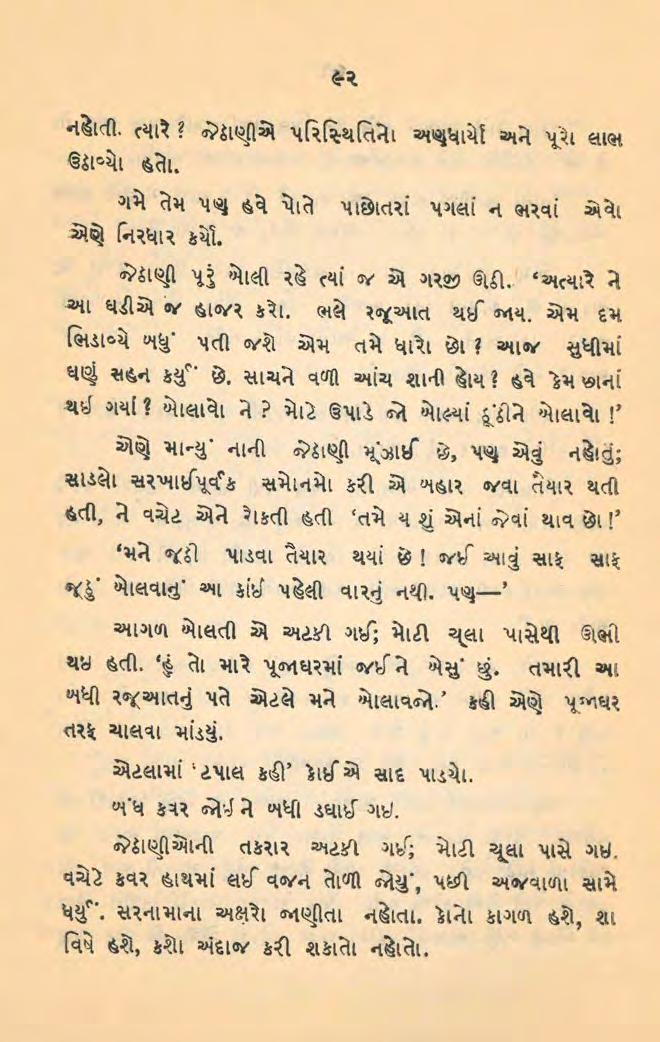 ૯૨
નહોતી. ત્યારે ? જેઠાણીએ પરિસ્થિતિનો અણધાર્યો અને પૂરો લાભ
ઉઠાવ્યો હતો.
ગમે તેમ પણ હવે પોતે પાછોતરાં પગલાં ન ભરવાં એવો
એણે નિરધાર કર્યો.
જેઠાણી પૂરું બોલી રહે ત્યાં જ એ ગરજી ઊઠી. ‘અત્યારે ને
આ ઘડીએ જ હાજર કરો. ભલે રજૂઆત થઈ જાય. એમ દમ
ભિડાવ્યે બધું પતી જશે એમ તમે ધારો છો ? આજ સુધીમાં
ઘણું સહન કર્યું છે. સાચને વળી આંચ શાની હોય ? હવે કેમ છાનાં
થઇ ગયાં ? બોલાવો ને ? મોટે ઉપાડે જો બોલ્યાં ઢૂંઢીને બોલાવો !’
એણે માન્યું નાની જેઠાણી મૂંઝાઈ છે, પણ એવું નહોતું;
સાડલો સરખાઈપૂર્વક સમોનમો કરી એ બહાર જવા તૈયાર થતી
હતી, ને વચેટ એને રોકતી હતી ‘તમે ય શું એનાં જેવાં થાવ છો !’
‘મને જૂઠી પાડવા તૈયાર થયાં છે ! જઈ આવું સાફ સાફ
જૂઠું બોલવાનું આ કાંઈ પહેલી વારનું નથી. પણ—’
આગળ બોલતી એ અટકી ગઈ; મોટી ચૂલા પાસેથી ઊભી
થઇ હતી. ‘હું તો મારે પૂજાઘરમાં જઈને બેસું છું. તમારી આ
બધી રજૂઆતનું પતે એટલે મને બોલાવજો.’ કહી એણે પૂજાઘર
તરફ ચાલવા માંડયું.
એટલામાં ‘ટપાલ કહી’ કોઈએ સાદ પાડયો.
બંધ કવર જોઈને બધી ડઘાઈ ગઇ.
જેઠાણીઓની તકરાર અટકી ગઈ; મોટી ચૂલા પાસે ગઇ.
વચેટે કવર હાથમાં લઈ વજન તોળી જોયું, પછી અજવાળા સામે
ધર્યું. સરનામાના અક્ષરો જાણીતા નહોતા. કોનો કાગળ હશે, શા
વિષે હશે, કશો અંદાજ કરી શકાતો નહોતો.